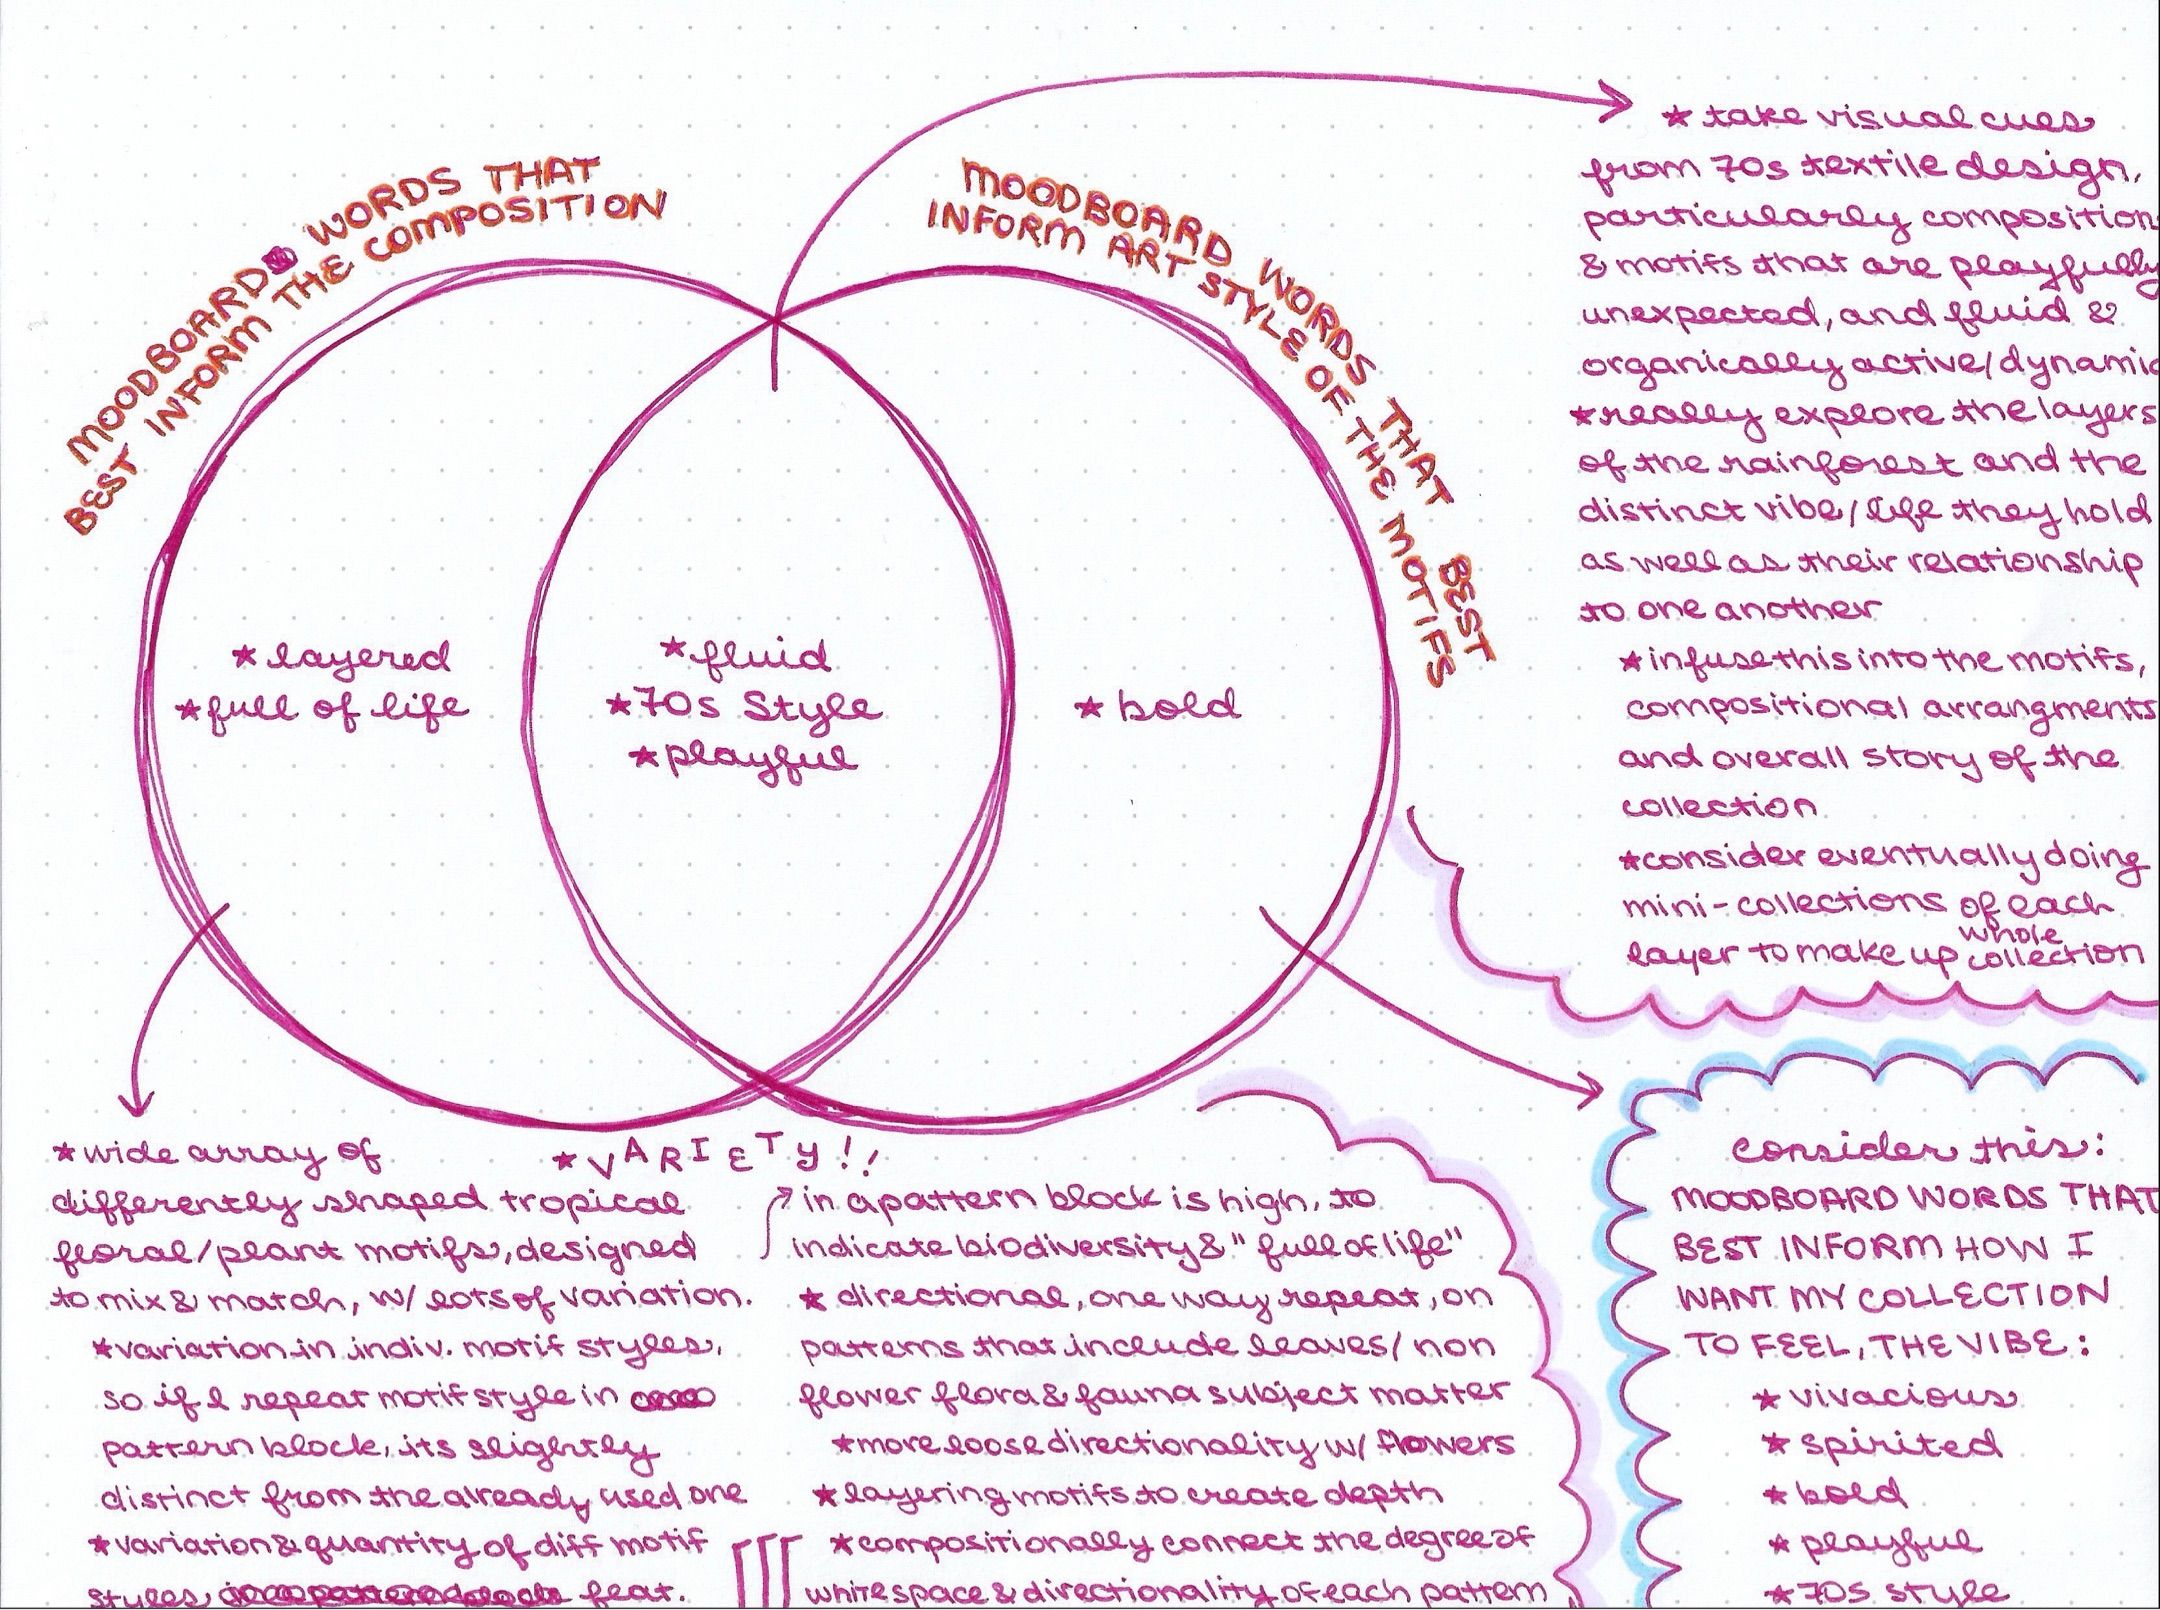 MOODBOARD WORDS THAT
BEST INFORM THE COMPOSITION
MOODBOARD WORDS THAT BEST
INFORM ART STYLE OF THE MOTIFS
* layered
* full of life
* fluid
* 70s Style
* playful
* bold
* take visual cues
from 70s textile design,
particularly composition
& motifs that are playfully
unexpected, and fluid &
organically active/dynamic
* really explore the layers
of the rainforest and the
distinct vibe/life they hold
as well as their relationship
to one another
* infuse this into the motifs,
compositional arrangments
and overall story of the
collection
* consider eventually doing
mini-collections of each
layer to make up whole collection
* wide array of
differently shaped tropical
floral/plant motifs, designed
to mix & match, w/ lots of variation.
* variation in indiv. motif styles,
so if I repeat motif style in
pattern block, its slightly
distinct from the already used one
* variation & quantity of diff motif
styles feat.
* VARIETY!!
in a pattern block is high, to
indicate biodiversity & "full of life"
* directional, one way repeat, on
patterns that include leaves/non
flower flora & fauna subject matter
* more loose directionality w/ flowers
* layering motifs to create depth
* compositionally connect the degree of
whitespace & directionality of each pattern
consider this:
MOODBOARD WORDS THAT
BEST INFORM HOW I
WANT MY COLLECTION
TO FEEL, THE VIBE:
* vivacious
* spirited
* bold
* playful
* 70s style